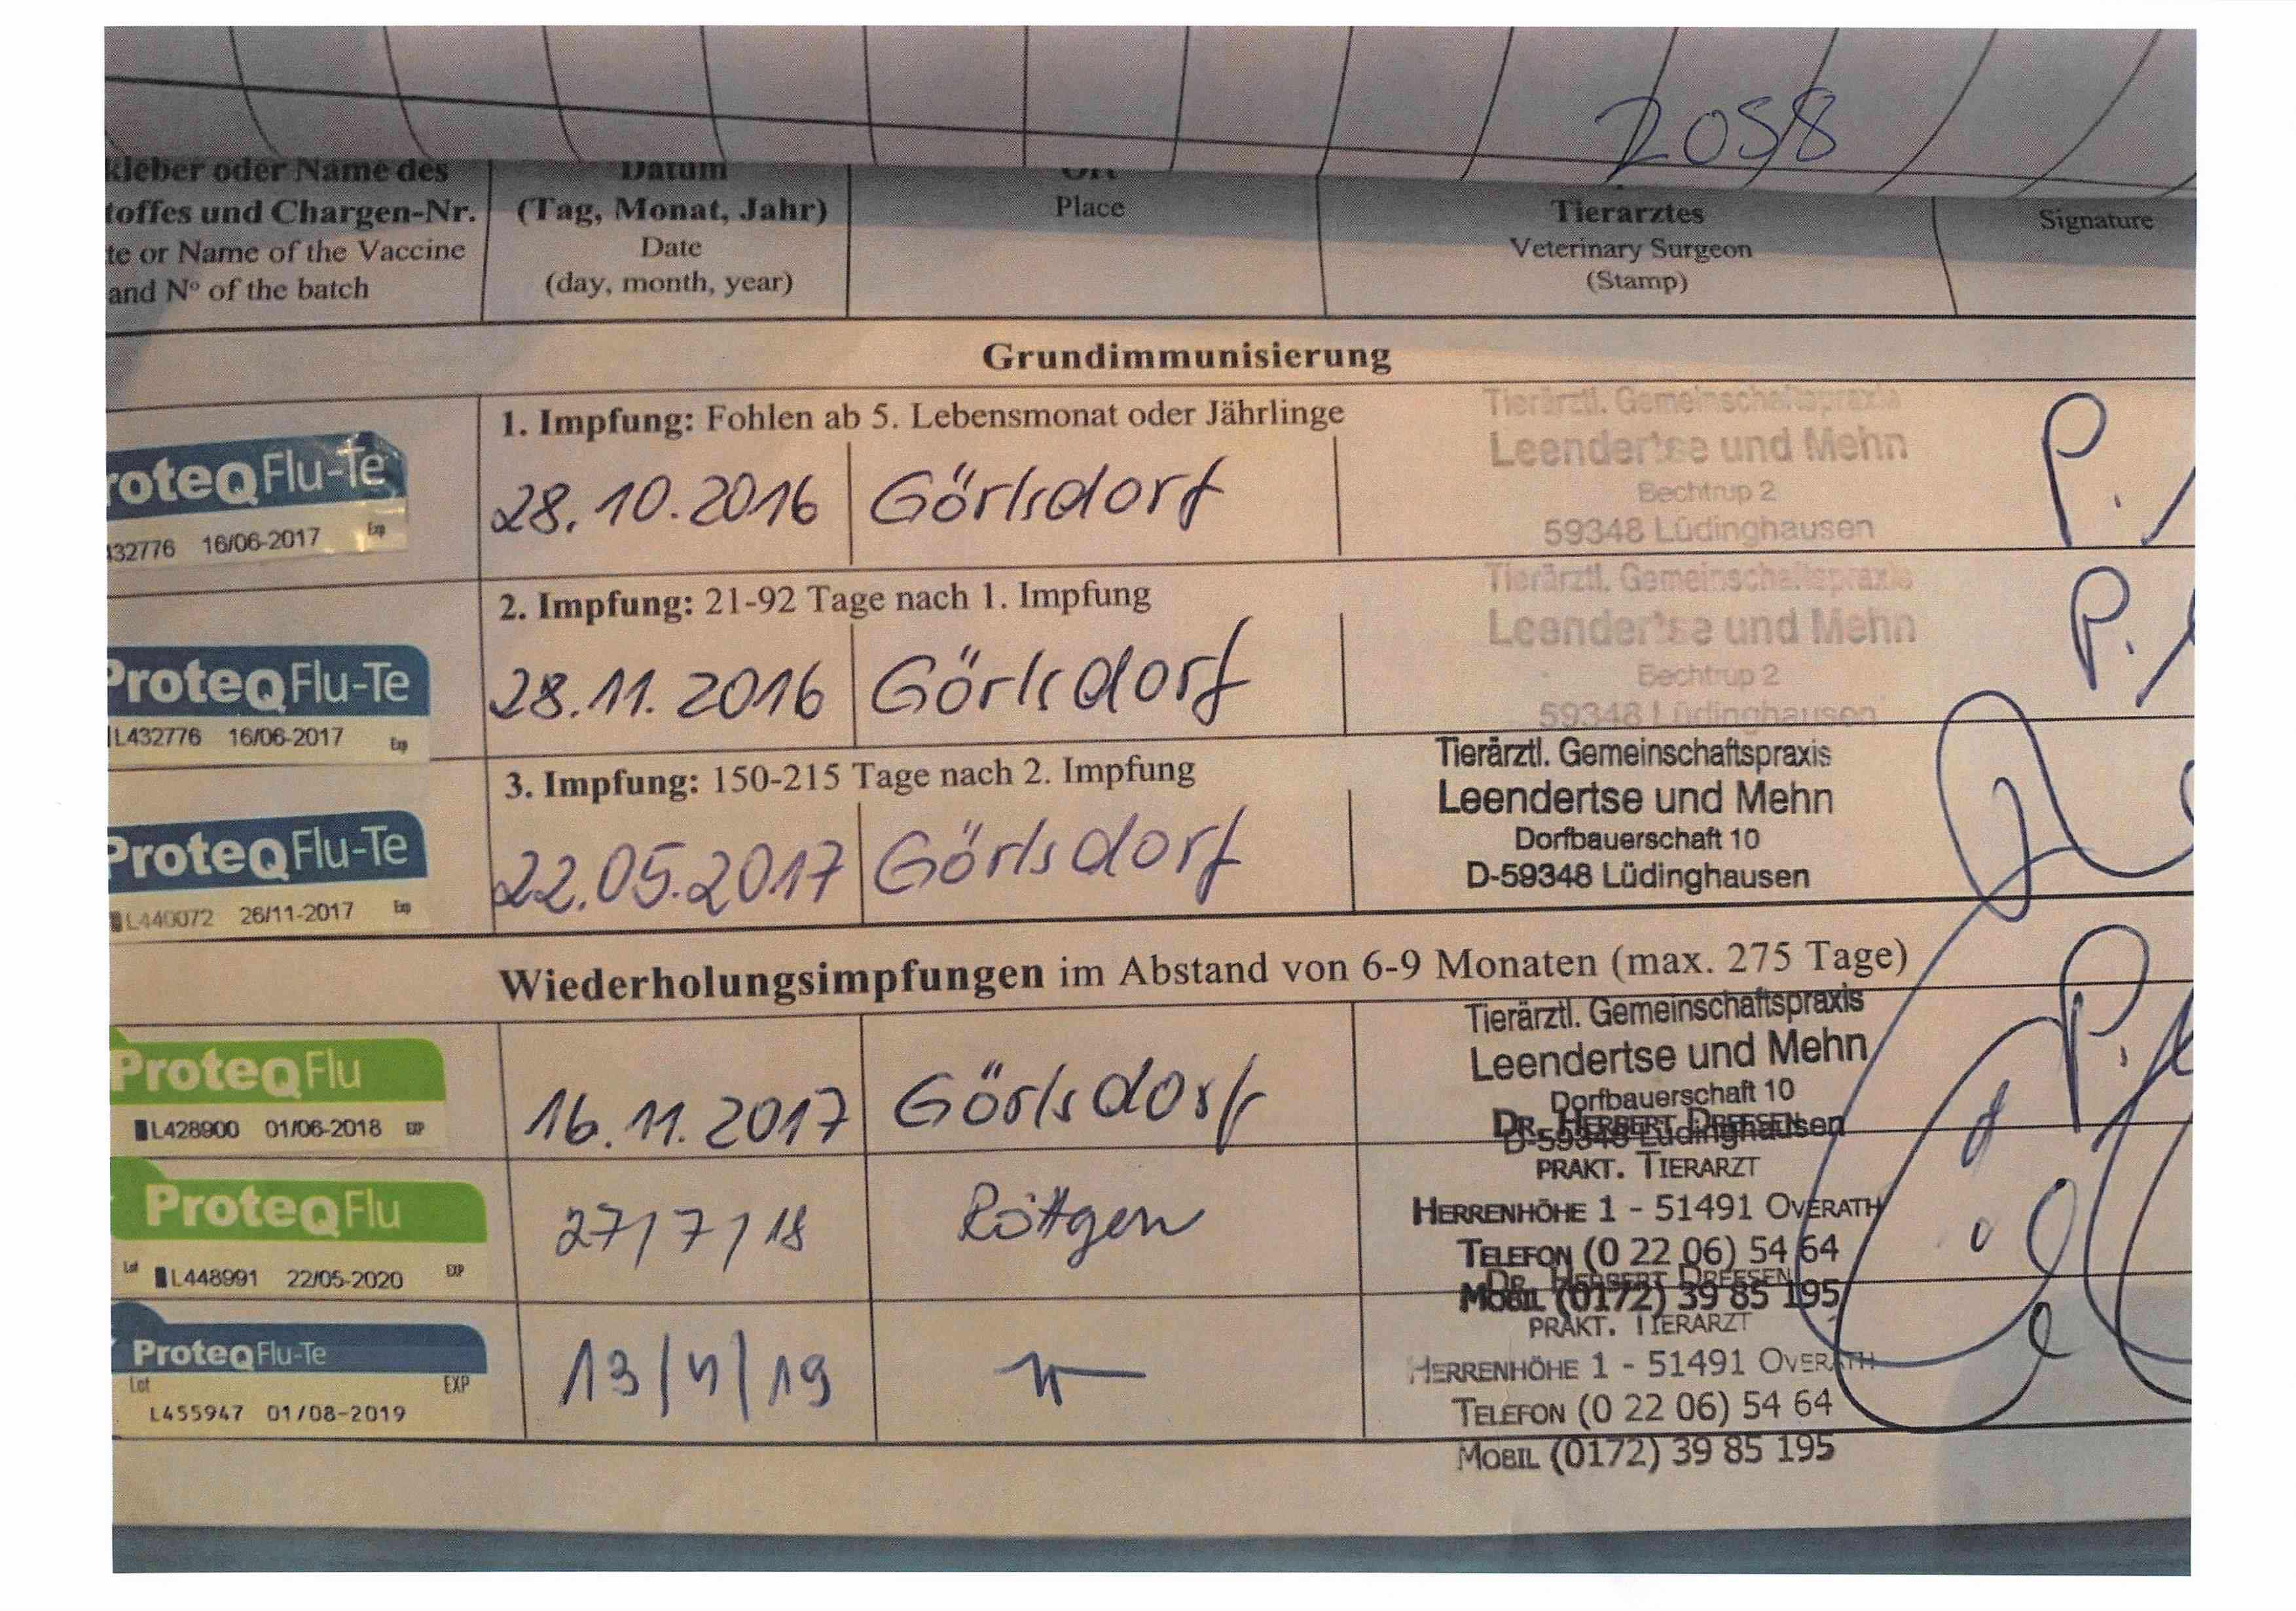 2058
kleber oder Name des
toffes und Chargen-Nr.
te or Name of the Vaccine
and N° of the batch
Datum
(Tag, Monat, Jahr)
Date
(day, month, year)
Ort
Place
Tierarztes
Veterinary Surgeon
(Stamp)
Signature
Grundimmunisierung
1. Impfung: Fohlen ab 5. Lebensmonat oder Jährlinge
roteqFlu-Te
32776 16/06-2017 Exp
28.10.2016 Görlsdorf
Tierärztl. Gemeinschaftspraxis
Leendertse und Mehn
Bechtrup 2
59348 Lüdinghausen
P.
2. Impfung: 21-92 Tage nach 1. Impfung
ProteqFlu-Te
L432776 16/06-2017 Exp
28.11.2016 Görlsdorf
Tierärztl. Gemeinschaftspraxis
Leendertse und Mehn
Bechtrup 2
59348 Lüdinghausen
P.
3. Impfung: 150-215 Tage nach 2. Impfung
ProteqFlu-Te
L440072 26/11-2017 Exp
22.05.2017 Görlsdorf
Tierärztl. Gemeinschaftspraxis
Leendertse und Mehn
Dorfbauerschaft 10
D-59348 Lüdinghausen
Wiederholungsimpfungen im Abstand von 6-9 Monaten (max. 275 Tage)
ProteqFlu
L428900 01/06-2018 EXP
16.11.2017 Görlsdorf
Tierärztl. Gemeinschaftspraxis
Leendertse und Mehn
Dorfbauerschaft 10
D-59348 Lüdinghausen
P.
ProteqFlu
Lot L448991 22/05-2020 EXP
27/7/18 Röttgen
DR. HERBERT DREESEN
PRAKT. TIERARZT
HERRENHÖHE 1 - 51491 OVERATH
TELEFON (0 22 06) 54 64
MOBIL (0172) 39 85 195
ProteqFlu-Te
Lot EXP
L455947 01/08-2019
13/4/19
DR. HERBERT DREESEN
PRAKT. TIERARZT
HERRENHÖHE 1 - 51491 OVERATH
TELEFON (0 22 06) 54 64
MOBIL (0172) 39 85 195